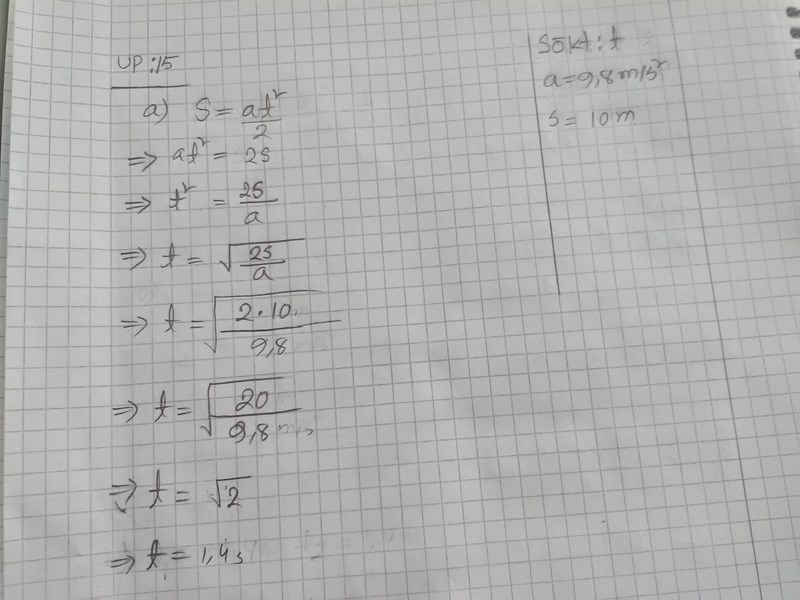 UP:15
a) S = at²/2
⇒ at² = 2s
⇒ t² = 2s/a
⇒ t = √(2s/a)
⇒ t = √(2·10/9,8)
⇒ t = √(20/9,8 m/s)
⇒ t = √2
⇒ t = 1,4s
Sökt: t
a = 9,8 m/s²
s = 10 m